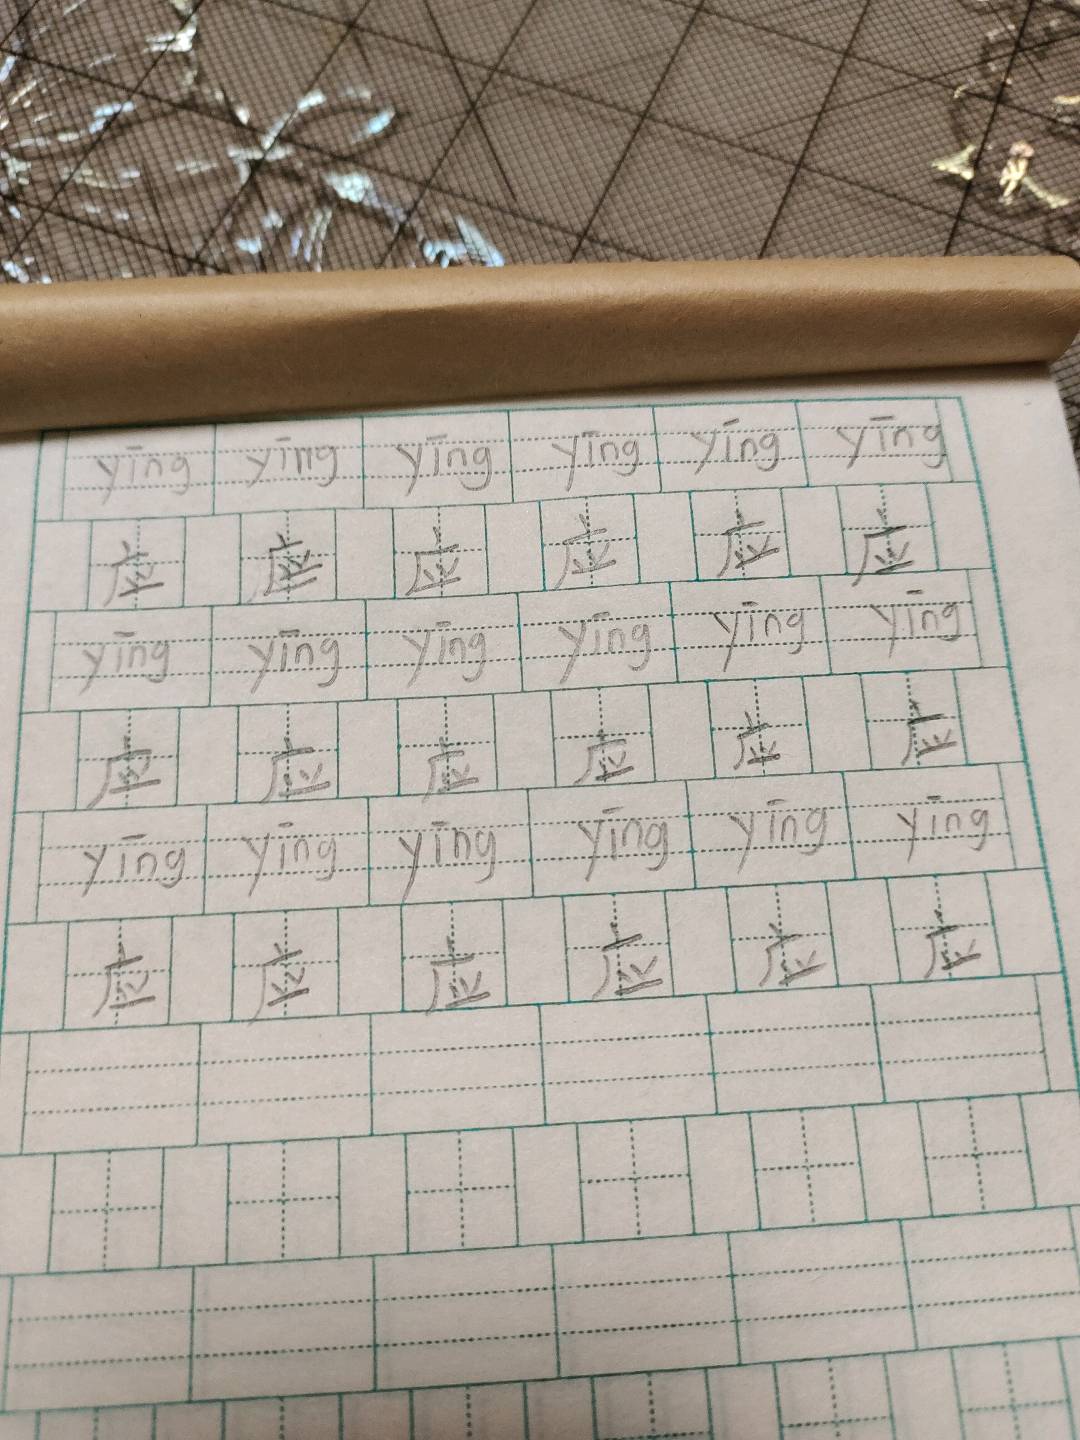 yīng yīng yīng yīng yīng yīng
应 应 应 应 应 应
yīng yīng yīng yīng yīng yīng
应 应 应 应 应 应
yīng yīng yīng yīng yīng yīng
应 应 应 应 应 应